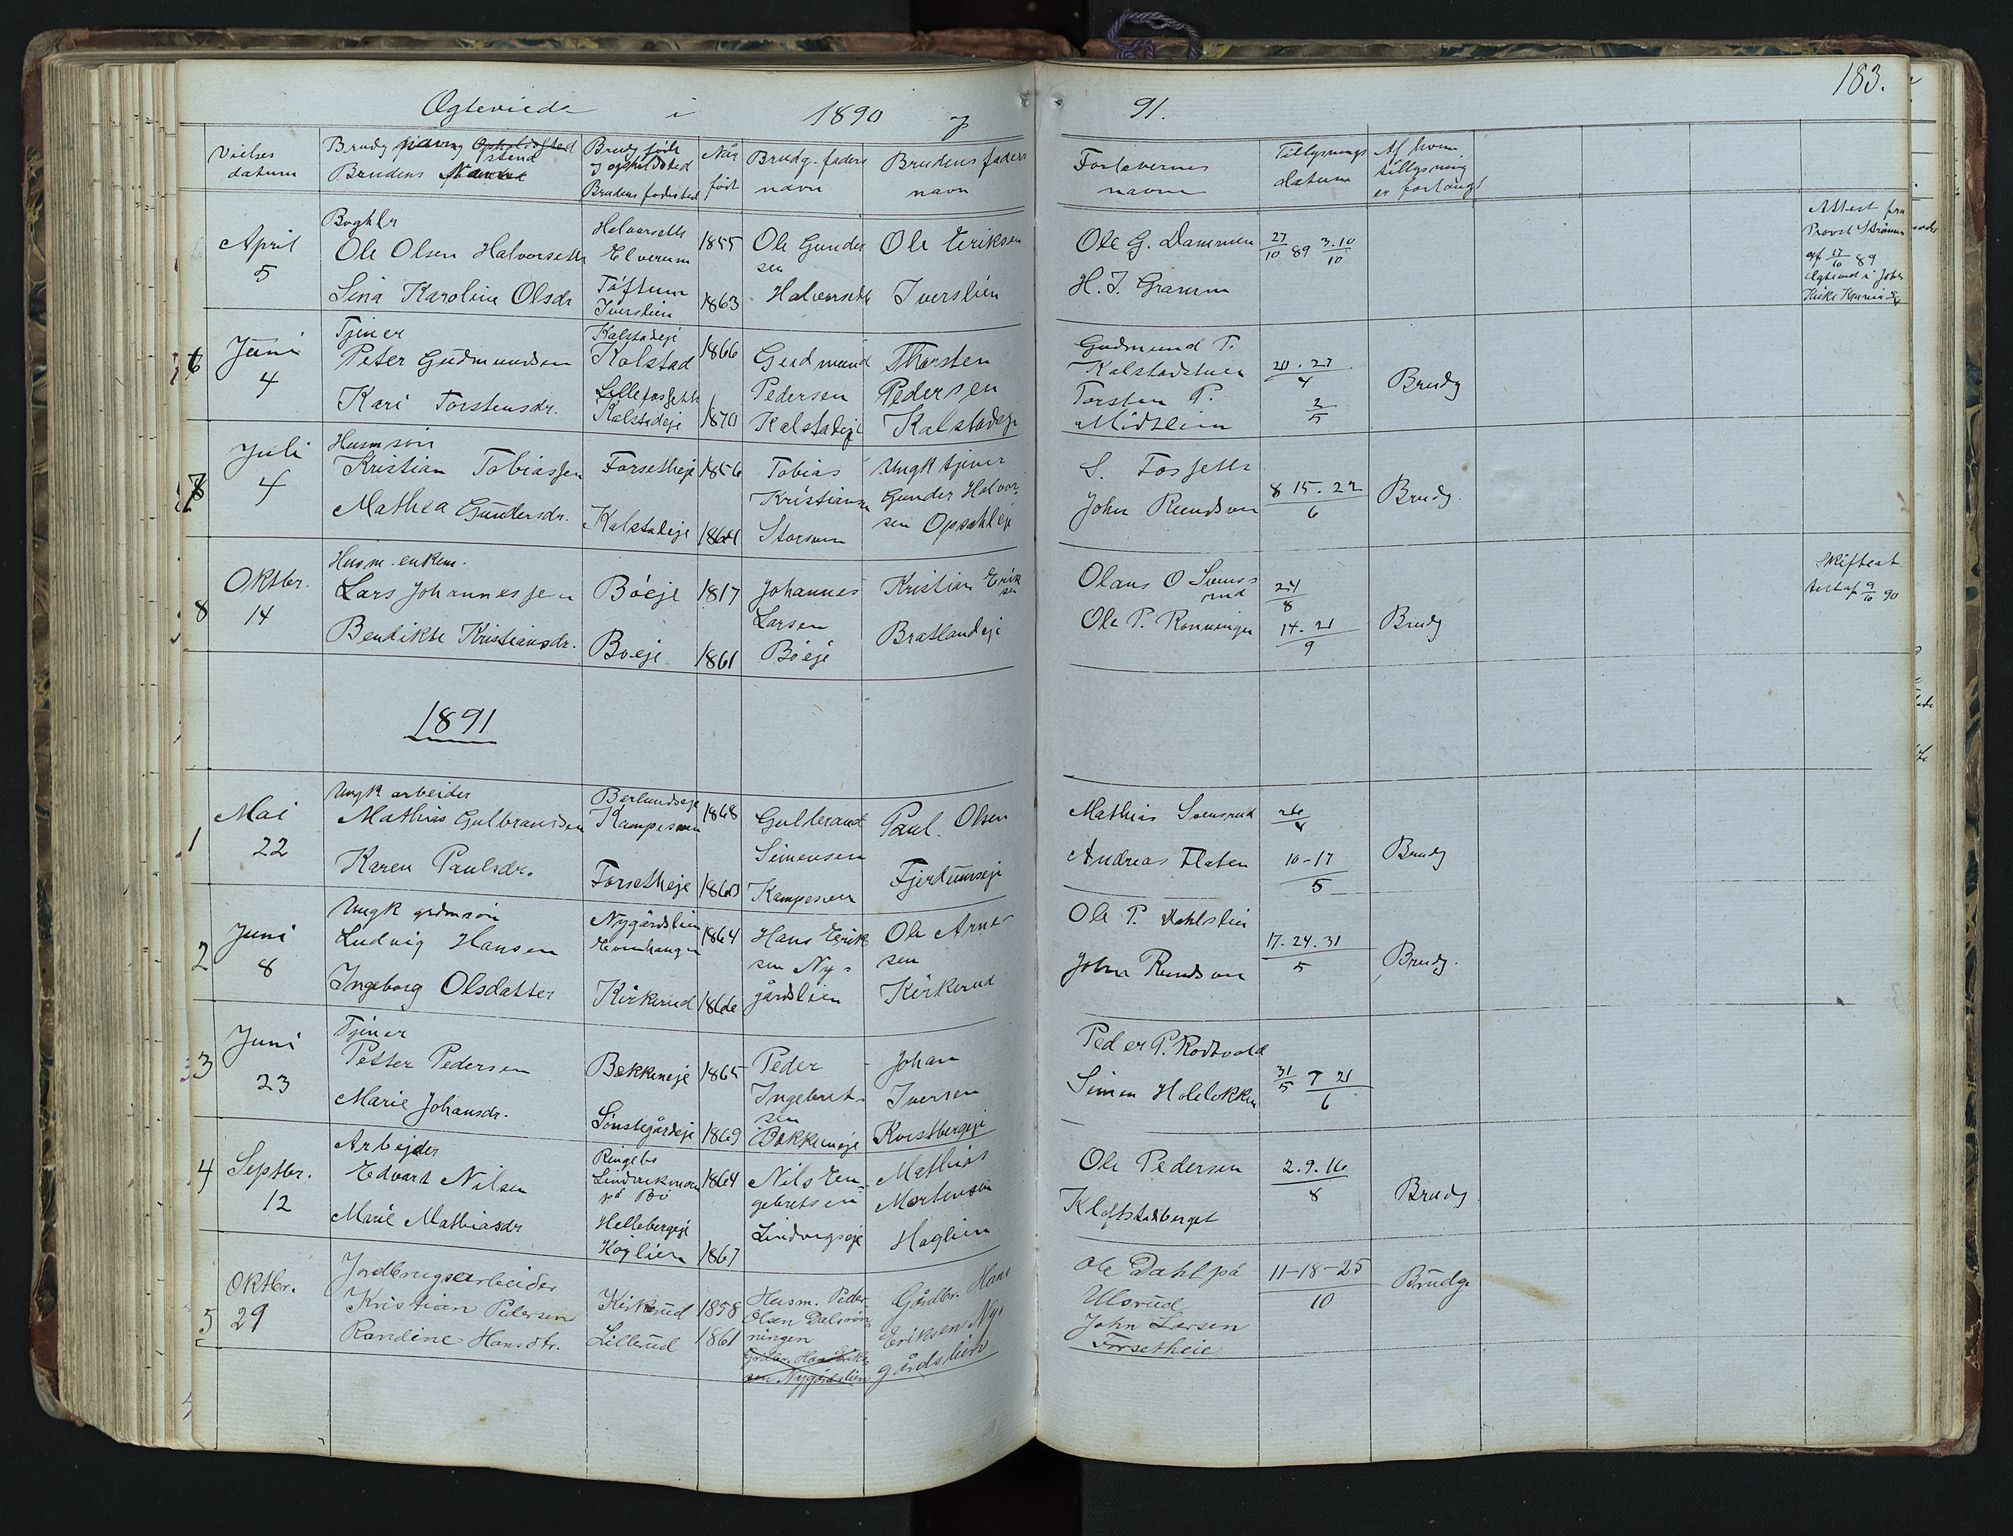 183.
Ogteviede i 1890 91.
Vielses datum
Brudg navn Opholdssted Stand
Brudens
Brudg føde & opholdsted
Brudens fødested
Når født
Brudg. faders navn
Brudens faders navn
Forlovernes navne
Tillysnings datum
Af hvem tillysning er forlangt
April 5
Boghlr
Ole Olsen Halvorseth
Sina Karoline Olsdr
Halvorseth
Elverum
Toftum
Iverslien
1855
1863
Ole Gunder
sen
Halvorseth
Ole Eriksen
Iverslien
Ole G. Dammen
H. J. Gramm
27/10 89 3.10/10
Attest fra
Provst Strømm
af 17/10 89
6
Juni 4
Tjener
Peter Gudmundsen
Kari Torstensdr.
Kalstadeje
Kalstad
Lillefosseth
Kalstadeje
1866
1870
Gudmund
Pedersen
Kalstadeje
Thorsten
Pedersen
Kalstadeje
Gudmund P.
Kalstadstuen
Torsten P.
Midtlien
20.27/4
2/5
Brudg
7
Juli 4
Husmsøn
Kristian Tobiassen
Mathea Gundersdr.
Forsetheje
Kalstadeje
1856
Tobias
Kristiansen
Storsven
Ungk tjener
Gunder Halvor-
sen Opsahleje
S. Fosseth
John Rundsven
8 15. 22/6
Brudg.
8
Oktbr. 14
Husm. enkem.
Lars Johannessen
Bendikte Kristiansdr.
Bøeje
Bøeje
1817
1861
Johannes
Larsen
Bøeje
Kristian Erik
sen
Bratlandeje
Olaus O Svens-
rud
Ole P. Rønningen
24/8
14. 21/9
Brudg
Skifteat
test af 9/10 90
1891
1
Mai 22
Ungk arbeider
Mathias Gulbrandsen
Karen Paulsdr.
Berlundseje
Kampesven
Forsetheje
1868
Gulbrand
Simensen
Kampesven
Paul Olsen
Fjerkumseje
Mathias Svensrud
Andreas Flaten
26/4
10-17/5
Brudg
2
Juni 8
Ungk grdmsøn
Ludvig Hansen
Ingeborg Olsdatter
Nygårdslien
Kirkerud
1864
1866
Hans Erik
sen Ny-
gårdslien
Ole Arne
sen
Kirkerud
Ole P. Dahlslien
John Rundsven
17. 24. 31/5
Brudg.
3
Juni 23
Tjener
Petter Pedersen
Marie Johansdr.
Bækkeneje
Sønstegårdeje
1865
1869
Peder
Ingebret-
sen
Bækkeneje
Johan
Iversen
Kvistbergeje
Peder P. Rodtvold
Simen Holeløkken
31/5 7 21/6
4
Septbr. 12
Arbejder
Edvart Nilsen
Marie Mathiasdr
Ringebo
på Bø
Hellebergeje
Høglien
1864
1867
Nils En-
gebretsen
Lindvigseje
Mathias
Mortensen
Haglien
Ole Pedersen
Kloftstadberget
2. 9. 16/8
Brudg
5
Oktbr. 29
Jordbrugsarbeider
Kristian Pedersen
Randine Hansdtr.
Kirkerud
Lillerud
1858
1861
Husm. Peder
Olsen Dalsrøn-
ningen
Grdbr. Hans Erik-
sen Nygårdslien
Gårdbr. Hans
Eriksen Ny-
gårdslien
Ole Dahl på
Ulsrud
John Larsen
Forsetheie
11-18-25/10
Brudg